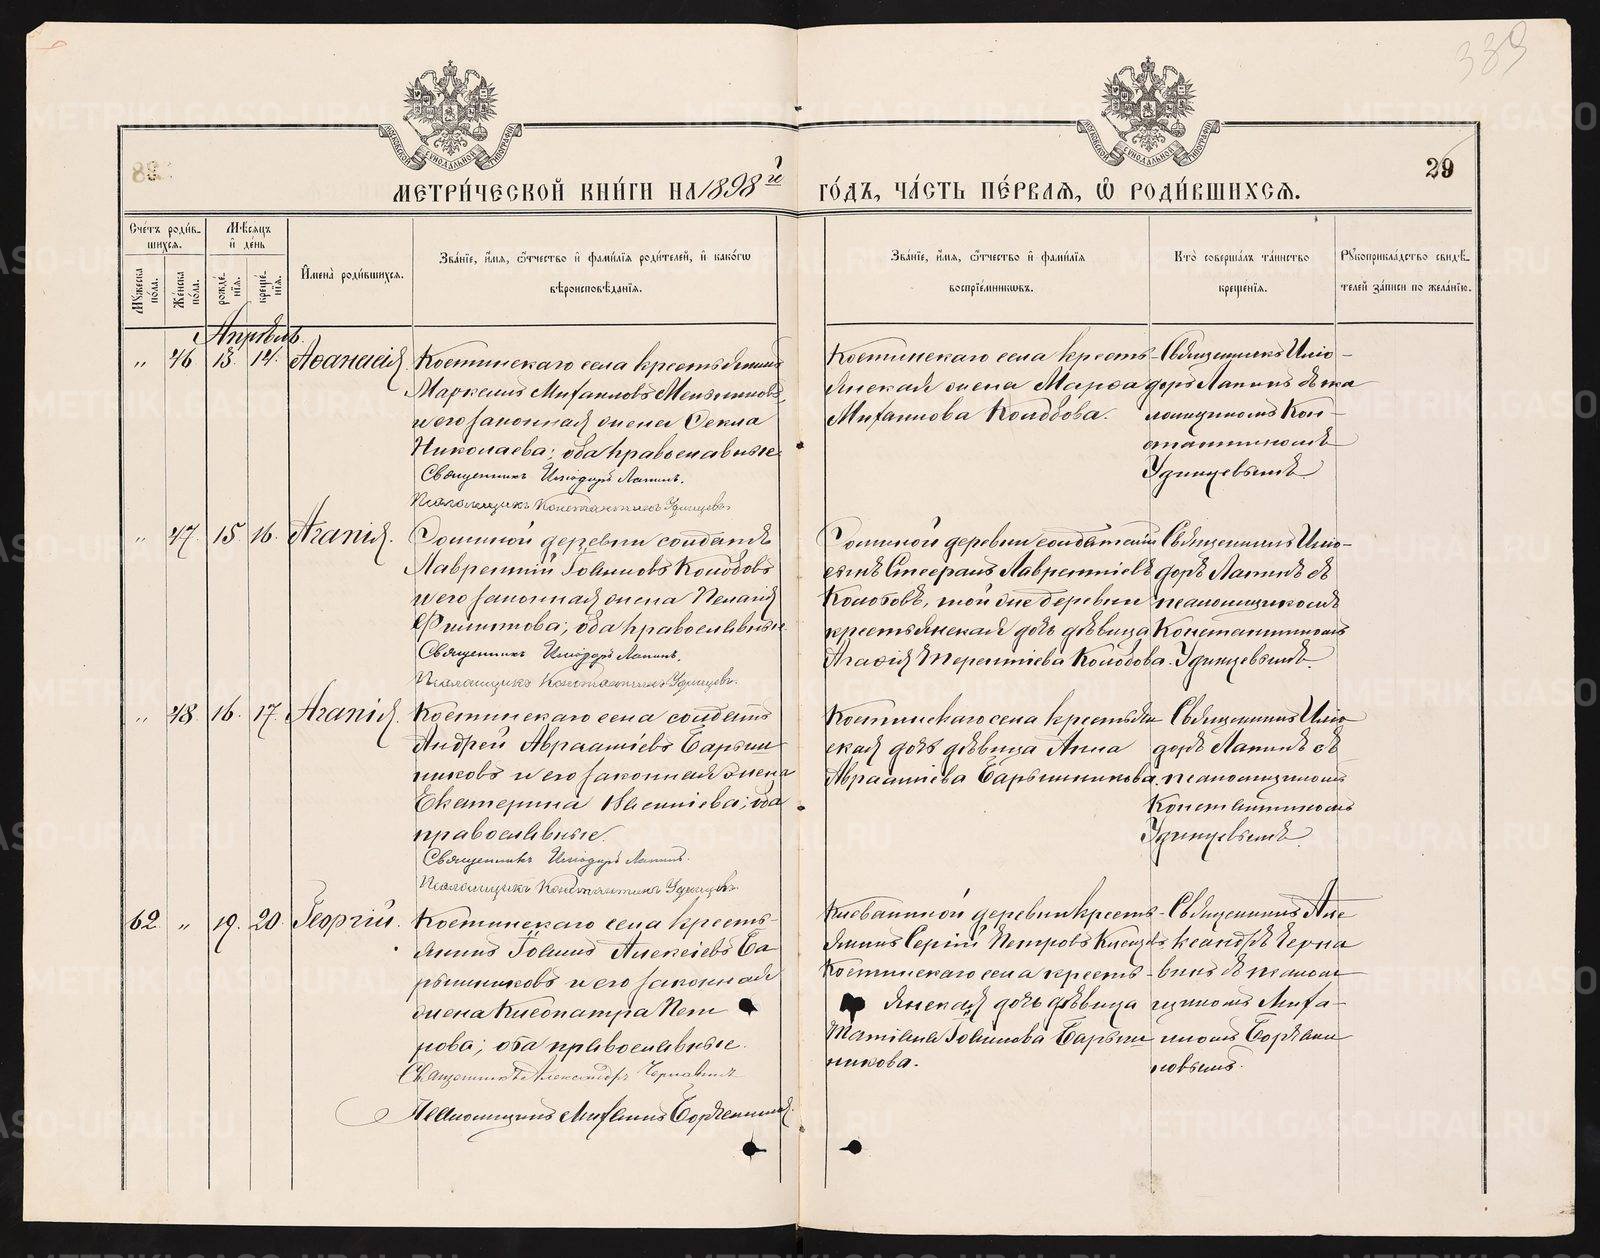 339
29
МЕТРИ́ЧЕСКОЙ КНИ́ГИ НА 1898й ГО́ДЪ, ЧА́СТЬ ПЕ́РВАЯ, Ѿ РОДИ́ВШИХСЯ.
Сче́тъ роди́в-
шихся.
Му́жеска по́ла.
Же́нска по́ла.
Мѣ́сяцъ
и҆ де́нь
рожде́-
нїя.
креще́-
нїя.
И҆мена̀ роди́вшихся.
Зва́нїе, и҆́мя, ѻ҆́тчество и҆ фами́лїя роди́телей, и҆ како́гѡ
вѣроисповѣ́данїя.
Зва́нїе, и҆́мя, ѻ҆́тчество и҆ фами́лїя
воспрїе́мникѡвъ.
Кто̀ соверша́лъ та́инство
креще́нїя.
Рꙋкоприкла́дство свидѣ́-
телей за́писи по жела́нїю.
Апрѣль.
" 46 13. 14. Аѳанасія.
Костинскаго села крестьянинъ
Маркеллъ Михаиловъ Меньшиковъ,
и его законная жена Ѳекла
Николаева; оба православные
Священникъ Иліодоръ Лапинъ.
Псаломщикъ Константинъ Удинцевъ.
Костинскаго села кресть-
янская жена Марѳа
Михаилова Колобова.
Священникъ Иліо-
доръ Лапинъ съ пса
ломщикомъ Кон-
стантиномъ
Удинцевымъ.
" 47. 15. 16. Агапія.
деревни солдатъ
Лаврентій Іоанновъ Колобовъ
и его законная жена Пелагія
Филиппова; оба православные
Священникъ Иліодоръ Лапинъ.
Псаломщикъ Константинъ Удинцевъ.
деревни солдатскій
сынъ Стефанъ Лаврентіевъ
Колобовъ, той же деревни
крестьянская дочь дѣвица
Агаѳія Терентіева Колобова.
Священникъ Иліо-
доръ Лапинъ съ
псаломщикомъ
Константиномъ
Удинцевымъ.
" 48. 16. 17. Агапія.
Костинскаго села солдатъ
Андрей Авраамієвъ Барыш
никовъ и его законная жена
Екатерина Василіева; оба
православные.
Священникъ Иліодоръ Лапинъ.
Псаломщикъ Константинъ Удинцевъ.
Костинскаго села крестьян
ская дочь дѣвица Анна
Авраамієва Барышникова.
Священникъ Иліо
доръ Лапинъ съ
псаломщикомъ
Константиномъ
Удинцевымъ.
62. " 19. 20. Георгій.
Костинскаго села кресть-
янинъ Іоаннъ Алексіевъ Ба
рышниковъ и его законная
жена Клеопатра Пет
рова; оба православные.
Священникъ Александръ Чернавинъ
Псаломщикъ Михаилъ Боржанинъ
деревни кресть-
янинъ Сергій Петровъ
Костинскаго села кресть-
янская дочь дѣвица
Татіана Іоаннова Барыш
никова.
Священникъ Але
ксандръ Черна
винъ съ псалом
щикомъ Миха-
иломъ